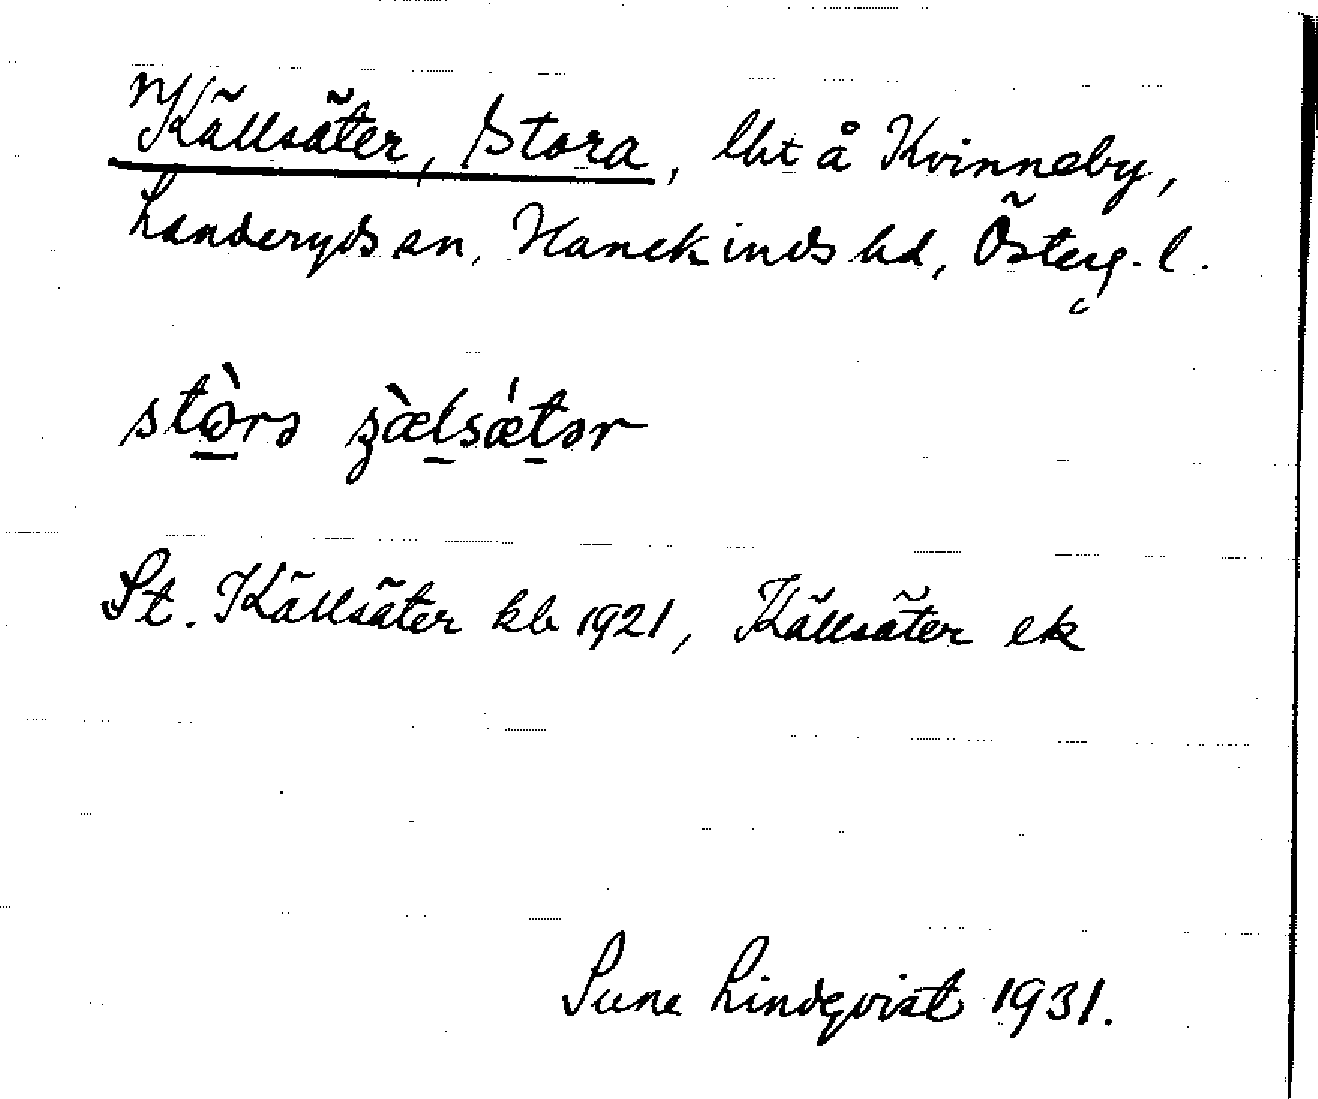 Källsäter, Stora, lht å Kvinneby,
Landeryds sn, Hanekinds hd, Österg. l.
stòrə ʒæ̀lsǽtər
St. Källsäter kb 1921, Källsäter ek
Sune Lindqvist 1931.